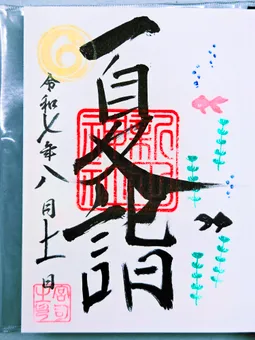 夏詣
令和七年八月十一日